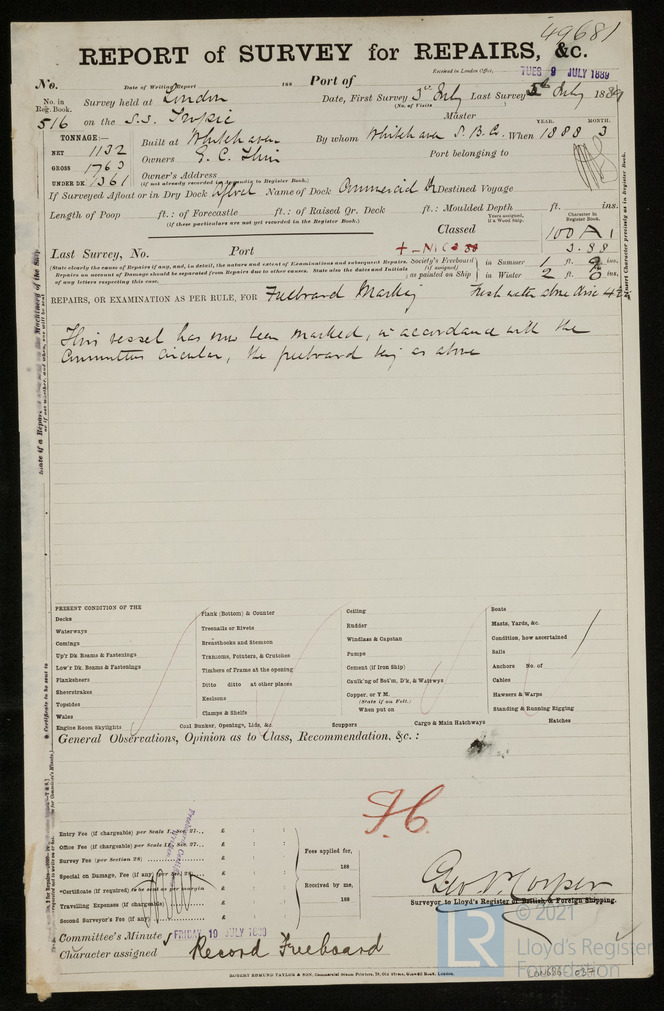 49681
REPORT of SURVEY for REPAIRS, &c.
No. Date of Writing Report 188 Port of Received in London Office, TUES 9 JULY 1889
No. in Reg. Book. Survey held at London Date, First Survey 3rd July Last Survey 5th July 1889
(No. of Visits) Master
516 on the S.S. Tropic
TONNAGE:— YEAR. MONTH.
NET 1132 Built at Whitehaven By whom Whitehaven S.B.Co. When 1888 3
GROSS 1763 Owners Port belonging to
UNDER DK 1361 Owner's Address
(if not already recorded in Appendix to Register Book.)
If Surveyed Afloat or in Dry Dock Afloat Name of Dock Commercial Dk Destined Voyage
Length of Poop ft.: of Forecastle ft.: of Raised Qr. Deck ft.: Moulded Depth ft. ins.
(if these particulars are not yet recorded in the Register Book.) Years assigned, if a Wood Ship. Character in Register Book.
Classed 100 A 1
Last Survey, No. Port 3.88
(State clearly the cause of Repairs if any, and, in detail, the nature and extent of Examinations and subsequent Repairs. Society's Freeboard in Summer 1 ft. 9 ins.
Repairs on account of Damage should be separated from Repairs due to other causes. State also the dates and Initials (if assigned) as painted on Ship in Winter 2 ft. 0 ins.
of any letters respecting this case.
REPAIRS, OR EXAMINATION AS PER RULE, FOR Freeboard Marking Fresh water above disc
This vessel has now been marked, in accordance with the
Committees circular, the freeboard being as above
PRESENT CONDITION OF THE
Decks
Waterways
Comings
Up'r Dk. Beams & Fastenings
Low'r Dk. Beams & Fastenings
Planksheers
Sheerstrakes
Topsides
Wales
Engine Room Skylights
Plank (Bottom) & Counter
Treenails or Rivets
Breasthooks and Stemson
Transoms, Pointers, & Crutches
Timbers of Frame at the opening
Ditto ditto at other places
Keelsons
Clamps & Shelfs
Coal Bunker, Openings, Lids, &c.
Ceiling
Rudder
Windlass & Capstan
Pumps
Cement (if Iron Ship)
Caulk'ng of Bot'm, D'k, & Waterwys
Copper, or Y M.
(State if on Felt.)
When put on
Scuppers
Cargo & Main Hatchways
Boats
Masts, Yards, &c.
Condition, how ascertained
Sails
Anchors No. of
Cables
Hawsers & Warps
Standing & Running Rigging
Hatches
General Observations, Opinion as to Class, Recommendation, &c. :
F.C.
Entry Fee (if chargeable) per Scale I., Sec. 27... £ : :
Office Fee (if chargeable) per Scale II., Sec. 27... £ : :
Survey Fee (per Section 28) £ : :
Special on Damage, Fee (if any) per Sec. 28 £ : :
*Certificate (if required) to be sent as per margin £ : :
Travelling Expenses (if chargeable) £ : :
Second Surveyor's Fee (if any) £ : :
Fees applied for,
188
Received by me,
188
Surveyor to Lloyd's Register of British & Foreign Shipping.
Committee's Minute FRIDAY 19 JULY 1889
Character assigned Record Freeboard
ROBERT EDMUND TAYLOR & SON, Commercial Steam Printers, 19, Old Street, Goswell Road, London.
LR
© 2021
Lloyd's Register
Foundation